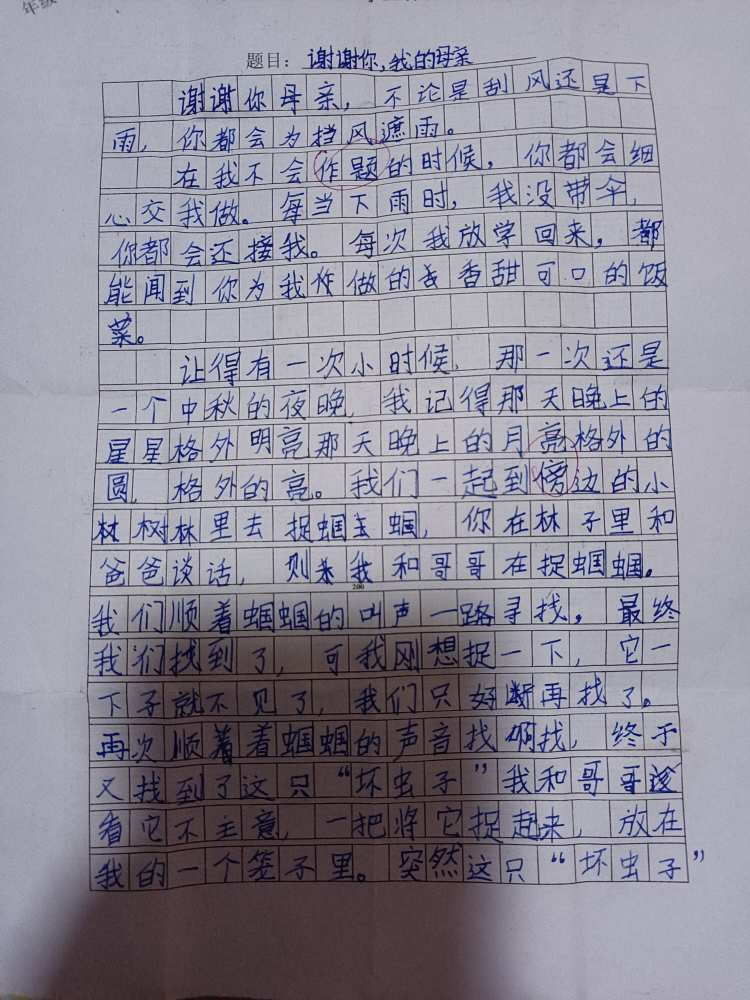 年级
题目：谢谢你，我的母亲
谢谢你母亲，不论是刮风还是下
雨，你都会为挡风遮雨。
在我不会作题的时候，你都会细
心交我做。每当下雨时，我没带伞，
你都会还接我。每次我放学回来，都
能闻到你为我做的香甜可口的饭
菜。
让得有一次小时候，那一次还是
一个中秋的夜晚，我记得那天晚上的
星星格外明亮那天晚上的月亮格外的
圆，格外的亮。我们一起到傍边的小
树林里去捉蝈蝈，你在林子里和
爸爸谈话，则我和哥哥在捉蝈蝈。
200
我们顺着蝈蝈的叫声一路寻找，最终
我们找到了，可我刚想捉一下，它一
下子就不见了，我们只好断再找了。
再次顺着着蝈蝈的声音找啊找，终于
又找到了这只“坏虫子”我和哥哥
看它不主意，一把将它捉起来，放在
我的一个笼子里。突然这只“坏虫子”